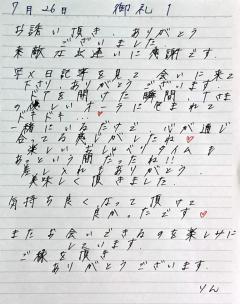 7月26日 御礼1
お誘い頂き、ありがとう
ございました
素敵な出逢いに感謝です。
写メ日記等を見て会いに来て
下さり、ありがとうございます。
ドアを開けた瞬間、さま
の優しいオーラに包まれて
ドキドキ...♡
一緒にいるだけで、心が通じ
合ってる感じがしたね♡
楽しいおしゃべりタイムも
あっという間だったね!!
差し入れもありがとう
美味しく頂きました。
気持ち良くなって頂けて
良かったです♡
またお会いできるのを楽しみに
しています。
ご縁を頂き
ありがとうございます。
りん